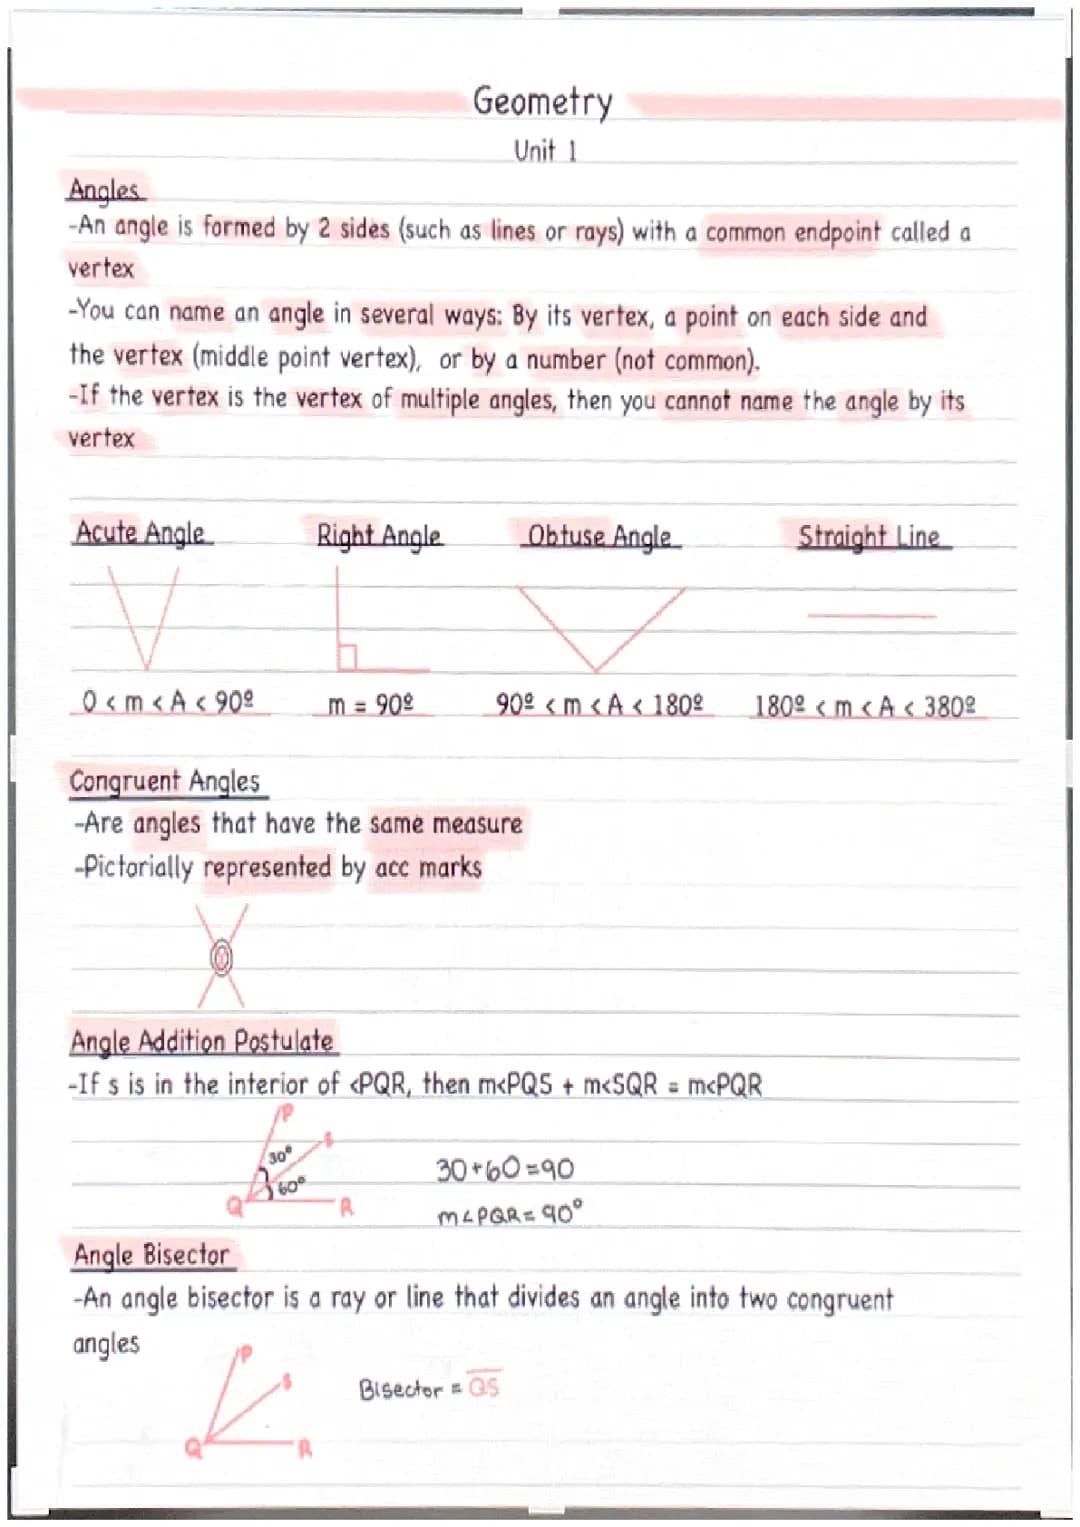 Geometry
Unit 1
Angles
-An angle is formed by 2 sides (such as lines or rays) with a common endpoint called a
vertex
-You can name an angle in several ways: By its vertex, a point on each side and
the vertex (middle point vertex), or by a number (not common).
-If the vertex is the vertex of multiple angles, then you cannot name the angle by its
vertex
Acute Angle Right Angle Obtuse Angle Straight Line
0 < m < A < 90º m = 90º 90º < m < A < 180º 180º < m < A < 380º
Congruent Angles
-Are angles that have the same measure
-Pictorially represented by acc marks
Angle Addition Postulate
-If s is in the interior of <PQR, then m<PQS + m<SQR = m<PQR
P
S
30°
60°
Q R
30+60=90
m∠PQR=90°
Angle Bisector
-An angle bisector is a ray or line that divides an angle into two congruent
angles
P
S
Q R
Bisector = Q̅S̅